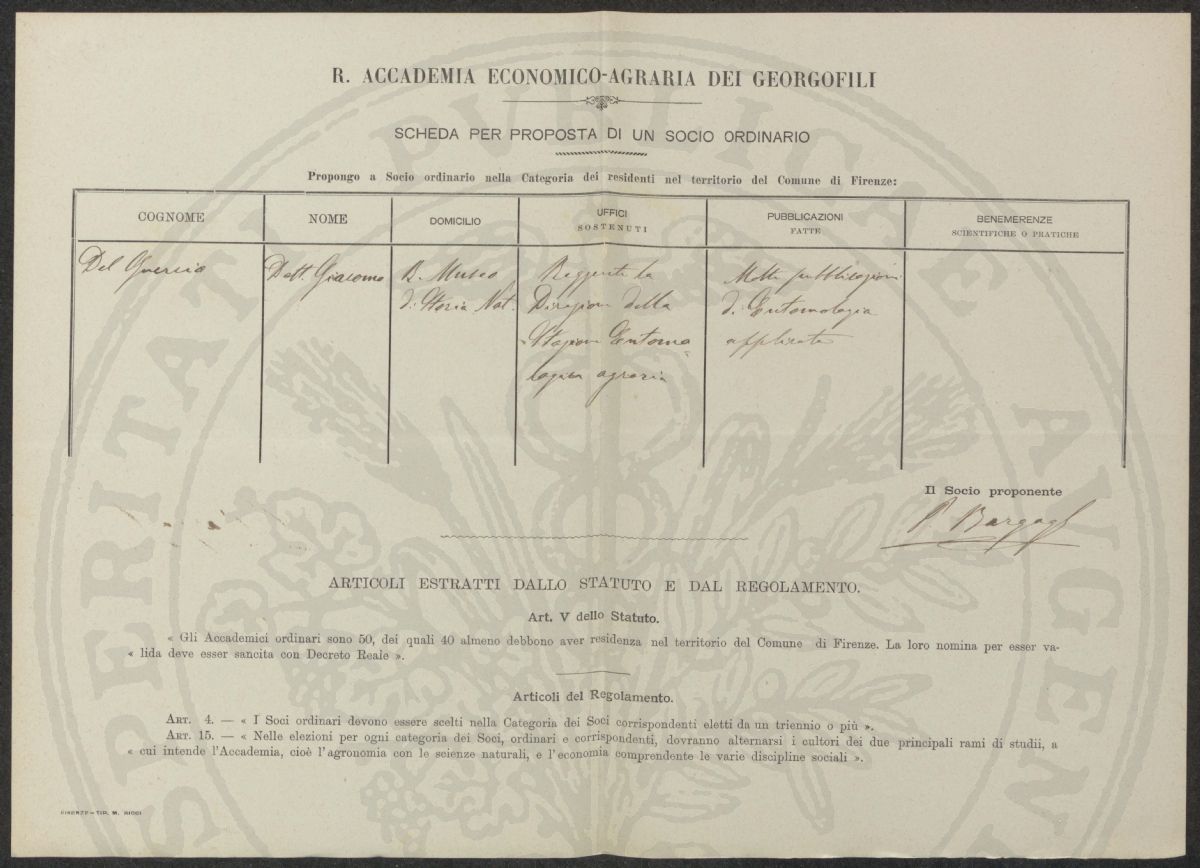 R. ACCADEMIA ECONOMICO-AGRARIA DEI GEORGOFILI
SCHEDA PER PROPOSTA DI UN SOCIO ORDINARIO
Propongo a Socio ordinario nella Categoria dei residenti nel territorio del Comune di Firenze:
COGNOME
NOME
DOMICILIO
UFFICI
SOSTENUTI
PUBBLICAZIONI
FATTE
BENEMERENZE
SCIENTIFICHE O PRATICHE
Del Guercio
Dott. Giacomo
R. Museo
di Storia Nat.
Reggente la
Direzione della
Stazione Entomo
logica agraria
Molte pubblicazioni
di Entomologia
applicata
Il Socio proponente
P. Bargagli
ARTICOLI ESTRATTI DALLO STATUTO E DAL REGOLAMENTO.
Art. V dello Statuto.
« Gli Accademici ordinari sono 50, dei quali 40 almeno debbono aver residenza nel territorio del Comune di Firenze. La loro nomina per esser va-
« lida deve esser sancita con Decreto Reale ».
Articoli del Regolamento.
ART. 4. — « I Soci ordinari devono essere scelti nella Categoria dei Soci corrispondenti eletti da un triennio o più ».
ART. 15. — « Nelle elezioni per ogni categoria dei Soci, ordinari e corrispondenti, dovranno alternarsi i cultori dei due principali rami di studii, a
« cui intende l'Accademia, cioè l'agronomia con le scienze naturali, e l'economia comprendente le varie discipline sociali ».
FIRENZE — TIP. M. RICCI
PROSPERITATI PVBLICAE AVGENDAE